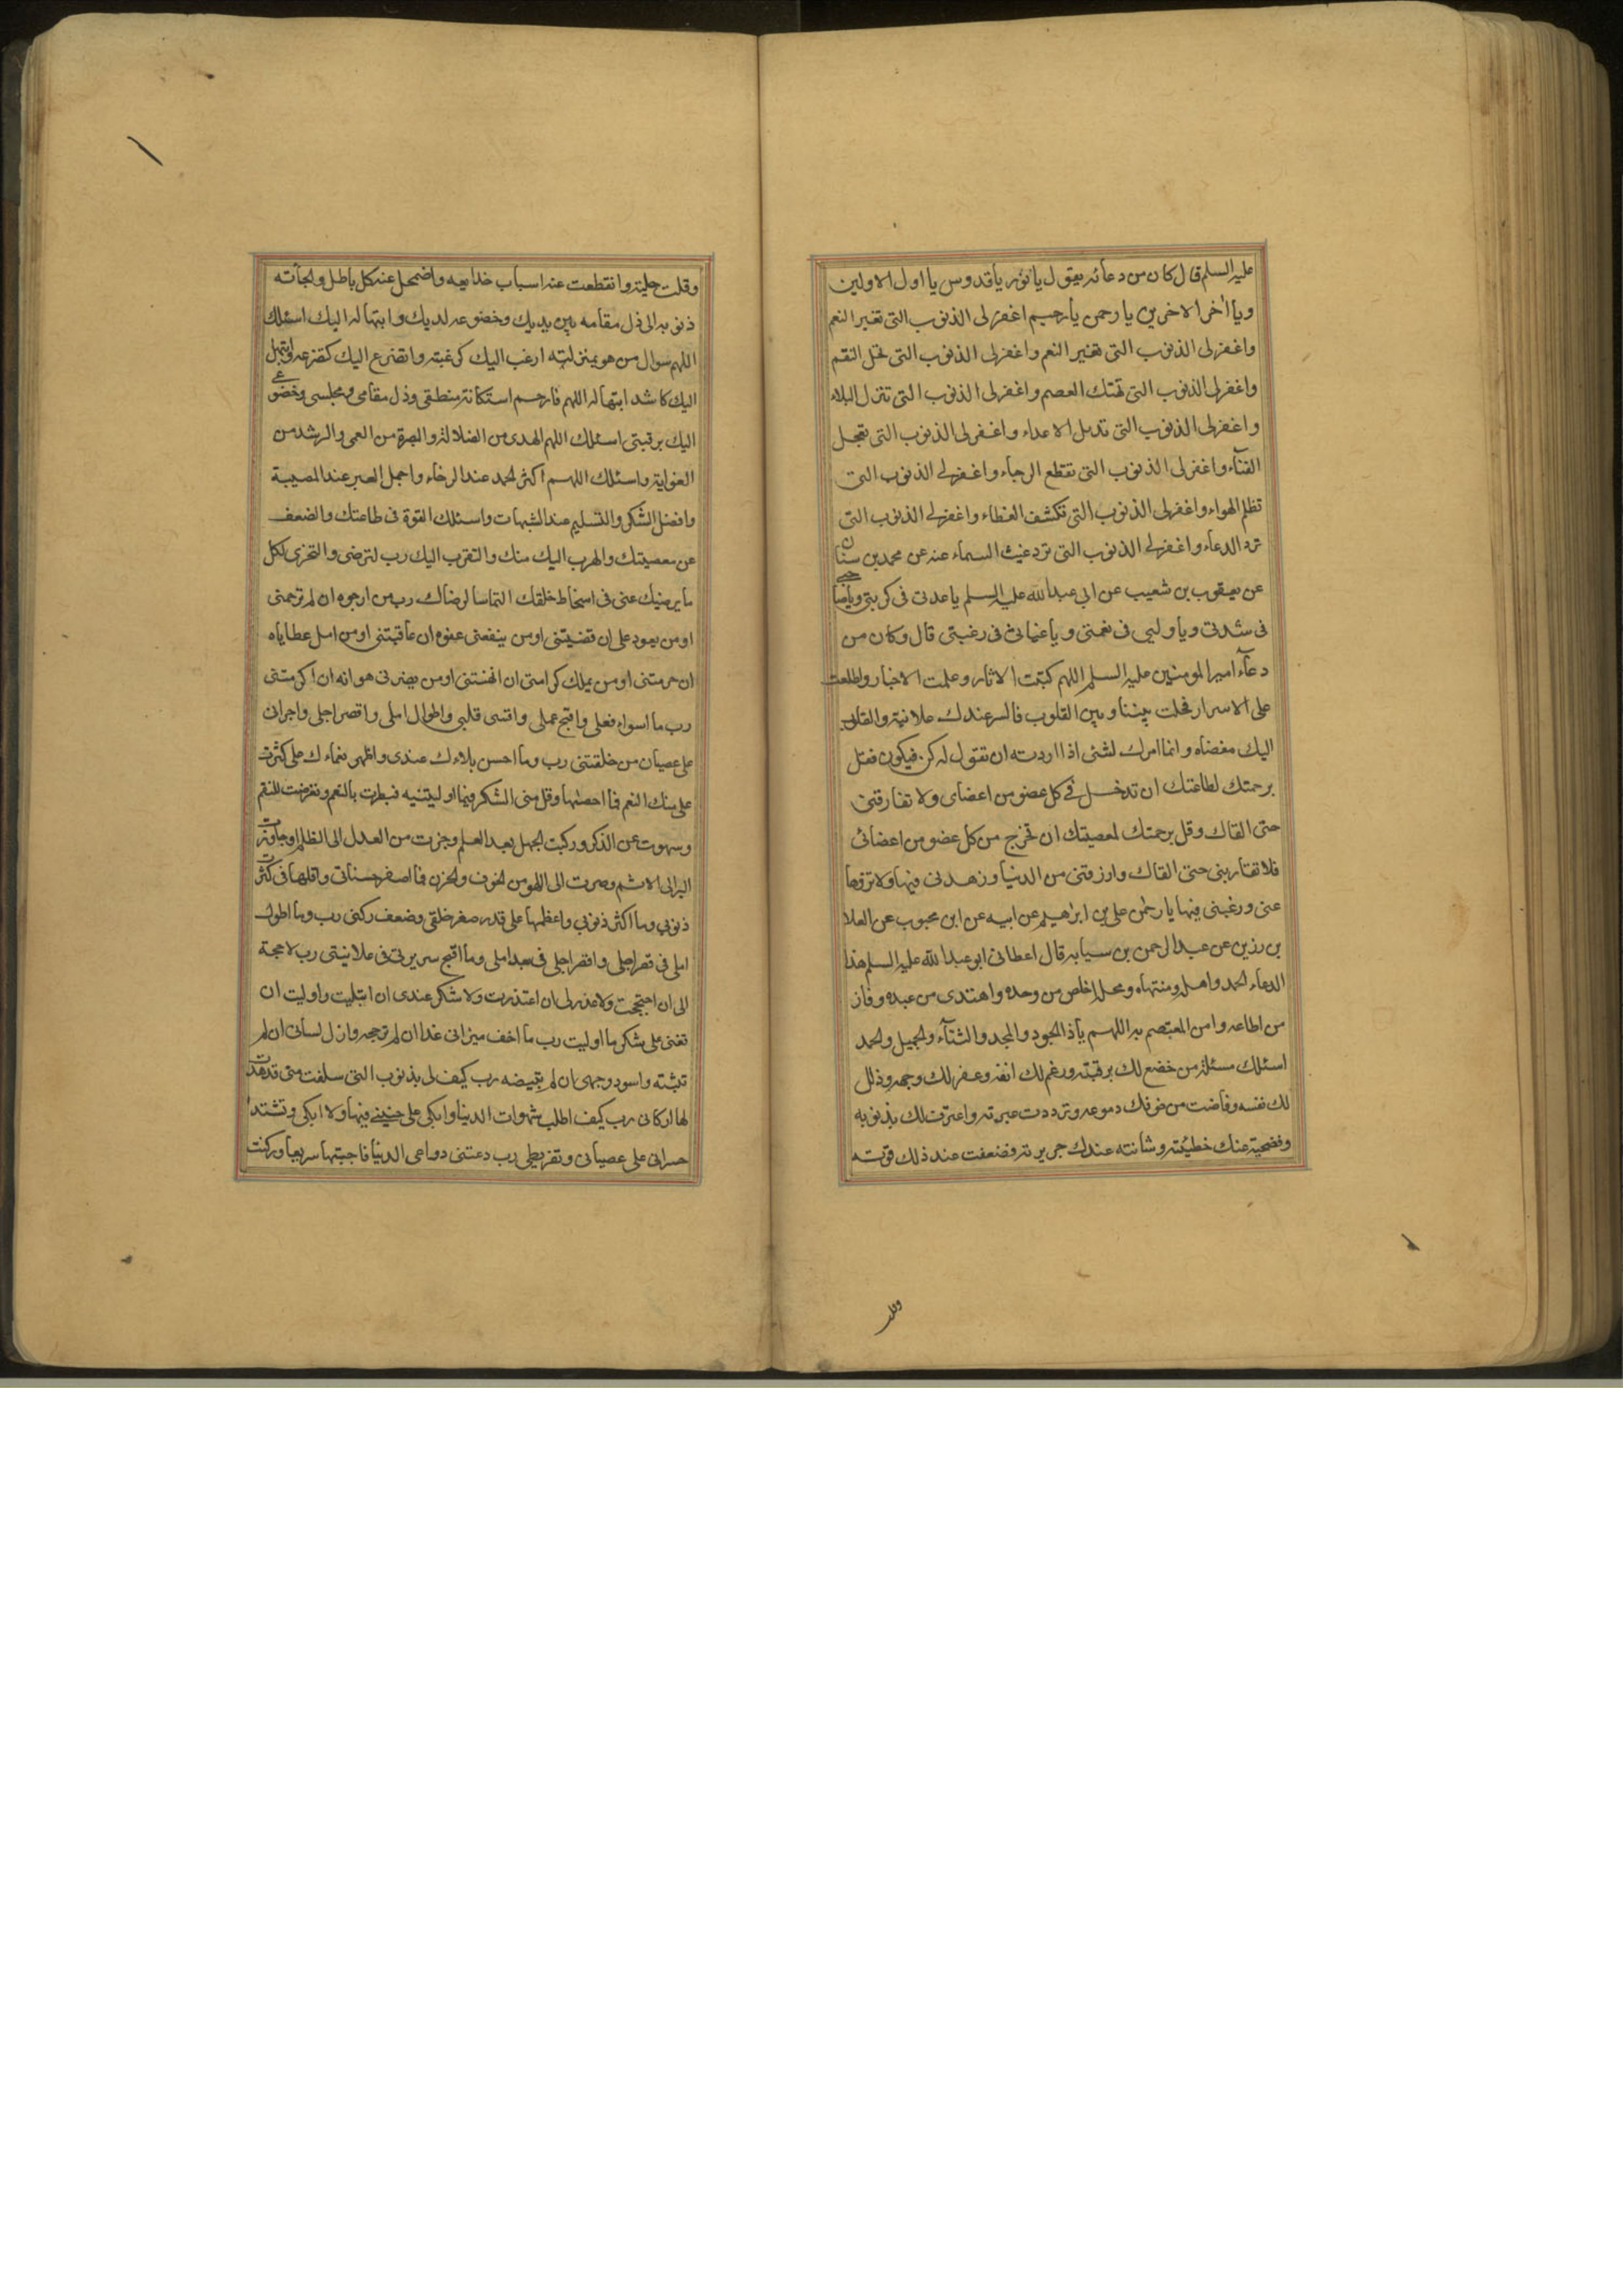 عليه السلم قال كان من دعائه يقول يا نور يا قدوس يا اول الاولين
ويا اخر الاخرين يا رحمن يا رحيم اغفر لى الذنوب التى تغير النعم
واغفر لى الذنوب التى تغير النعم واغفر لى الذنوب التى تحل النقم
واغفر لى الذنوب التى تهتك العصم واغفر لى الذنوب التى تنزل البلاء
واغفر لى الذنوب التى تديل الاعداء واغفر لى الذنوب التى تعجل
الفنآء واغفر لى الذنوب التى تقطع الرجاء واغفر لى الذنوب التى
تظلم الهواء واغفر لى الذنوب التى تكشف الغطاء واغفر لى الذنوب التى
ترد الدعاء واغفر لى الذنوب التى ترد غيث السماء عنه عن محمد بن سنان
عن يعقوب بن شعيب عن ابي عبد الله عليه السلم يا عدتى فى كربتى ويا صاحبى
فى شدتى ويا وليى فى نعمتى ويا غياثى فى رغبتى قال وكان من
دعآء امير المومنين عليه السلم اللهم كتبت الاثار وعلمت الاخبار واطلعت
على الاسرار فحلت بيننا وبين القلوب فالسر عندك علانية والقلوب
اليك مفضاه وانما امرك لشئ اذا اردته ان تقول له كن فيكون فقل
برحمتك لطاعتك ان تدخل فى كل عضو من اعضاى ولا تفارقنى
حتى القاك وقل برحمتك لمعصيتك ان تخرج من كل عضو من اعضائى
فلا تقاربنى حتى القاك وارزقنى من الدنيا وزهدنى فيها ولا تزوها
عنى ورغبنى فيها يا رحمن على بن ابرهيم عن ابيه عن ابن محبوب عن العلا
بن رزين عن عبد الرحمن بن سيابه قال اعطانى ابو عبد الله عليه السلم هذا
الدعاء الحمد واهله ومنتهاه ومحله اخلص من وحده واهتدى من عبده وفاز
من اطاعه وامن المعتصم به اللهم يا ذا الجود والمجد والثنآء والجميل والحمد
اسئلك مسئلة من خضع لك برقبته ورغم لك انفه وعفر لك وجهه وذلل
لك نفسه وفاضت من خوفك دموعه وترددت عبرته واعترف لك بذنوبه
وفضحته عنك خطيئته وشانته عندك جريرته وضعفت عند ذلك قوته
وقلت
وقلت حيلته وانقطعت عنه اسباب خدايعه واضمحل عنه كل باطل والجأته
ذنوبه الى ذل مقامه بين يديك وخضوعه لديك وابتهاله اليك اسئلك
اللهم سوال من هو بمنزلته ارغب اليك كرغبته واتضرع اليك كتضرعه وابتهل
اليك كاشد ابتهاله اللهم فارحم استكانة منطقى وذل مقامى ومجلسى وخضوعى
اليك برقبتى اسئلك اللهم الهدى من الضلالة والبصرة من العمى والرشد من
الغواية واسئلك اللهم اكثر الحمد عند الرخاء واجمل الصبر عند المصيبة
وافضل الشكر والتسليم عند الشبهات واسئلك القوة فى طاعتك والضعف
عن معصيتك والهرب اليك منك والتقرب اليك رب لترضى والتحرى لكل
ما يرضيك عنى فى اسخاط خلقك التماسا لرضاك رب من ارجوه ان لم ترحمنى
او من يعود على ان قضيتنى او من ينفعنى عفوه ان عاقبتنى او من امل عطاياه
ان حرمتنى او من يملك كرامتى ان اهنتنى او من يضرنى هوانه ان اكرمتنى
رب ما اسواء فعلى واقبح عملى واقسى قلبى واطول املى واقصر اجلى واجرانى
على عصيان من خلقتنى رب وما احسن بلاءك عندى واظهر نعماءك على كثرت
على منك النعم فما احصيها وقل منى الشكر فيما اوليتنيه فبطرت بالنعم وتعرضت للنقم
وسهوت عن الذكر وركبت الجهل بعد العلم وجزت من العدل الى الظلم وجاوزت
البر الى الاثم وصرت الى اللهو من الخوف والحزن فما اصغر حسناتى واقلها فى كثرة
ذنوبي وما اكثر ذنوبي واعظمها على قدر صغر خلقى وضعف ركنى رب وما اطول
املى فى قصر اجلى واقصر اجلى فى بعد املى وما اقبح سريرتى فى علانيتى رب لا حجة
لى ان احتججت ولا عذر لى ان اعتذرت ولا شكر عندى ان ابتليت واوليت ان
تعنى على شكر ما اوليت رب ما اخف ميزانى غدا ان لم ترجحه وازل لسانى ان لم
تثبته واسود وجهى ان لم تبيضه رب كيف لى بذنوبى التى سلفت منى قد هدت
لها اركانى رب كيف اطلب شهوات الدنيا وابكى على فيها ولا ابكى وتشتد
حسراتى على عصيانى وتفريطى رب دعتنى دواعى الدنيا فاجبتها سريعا وركنت